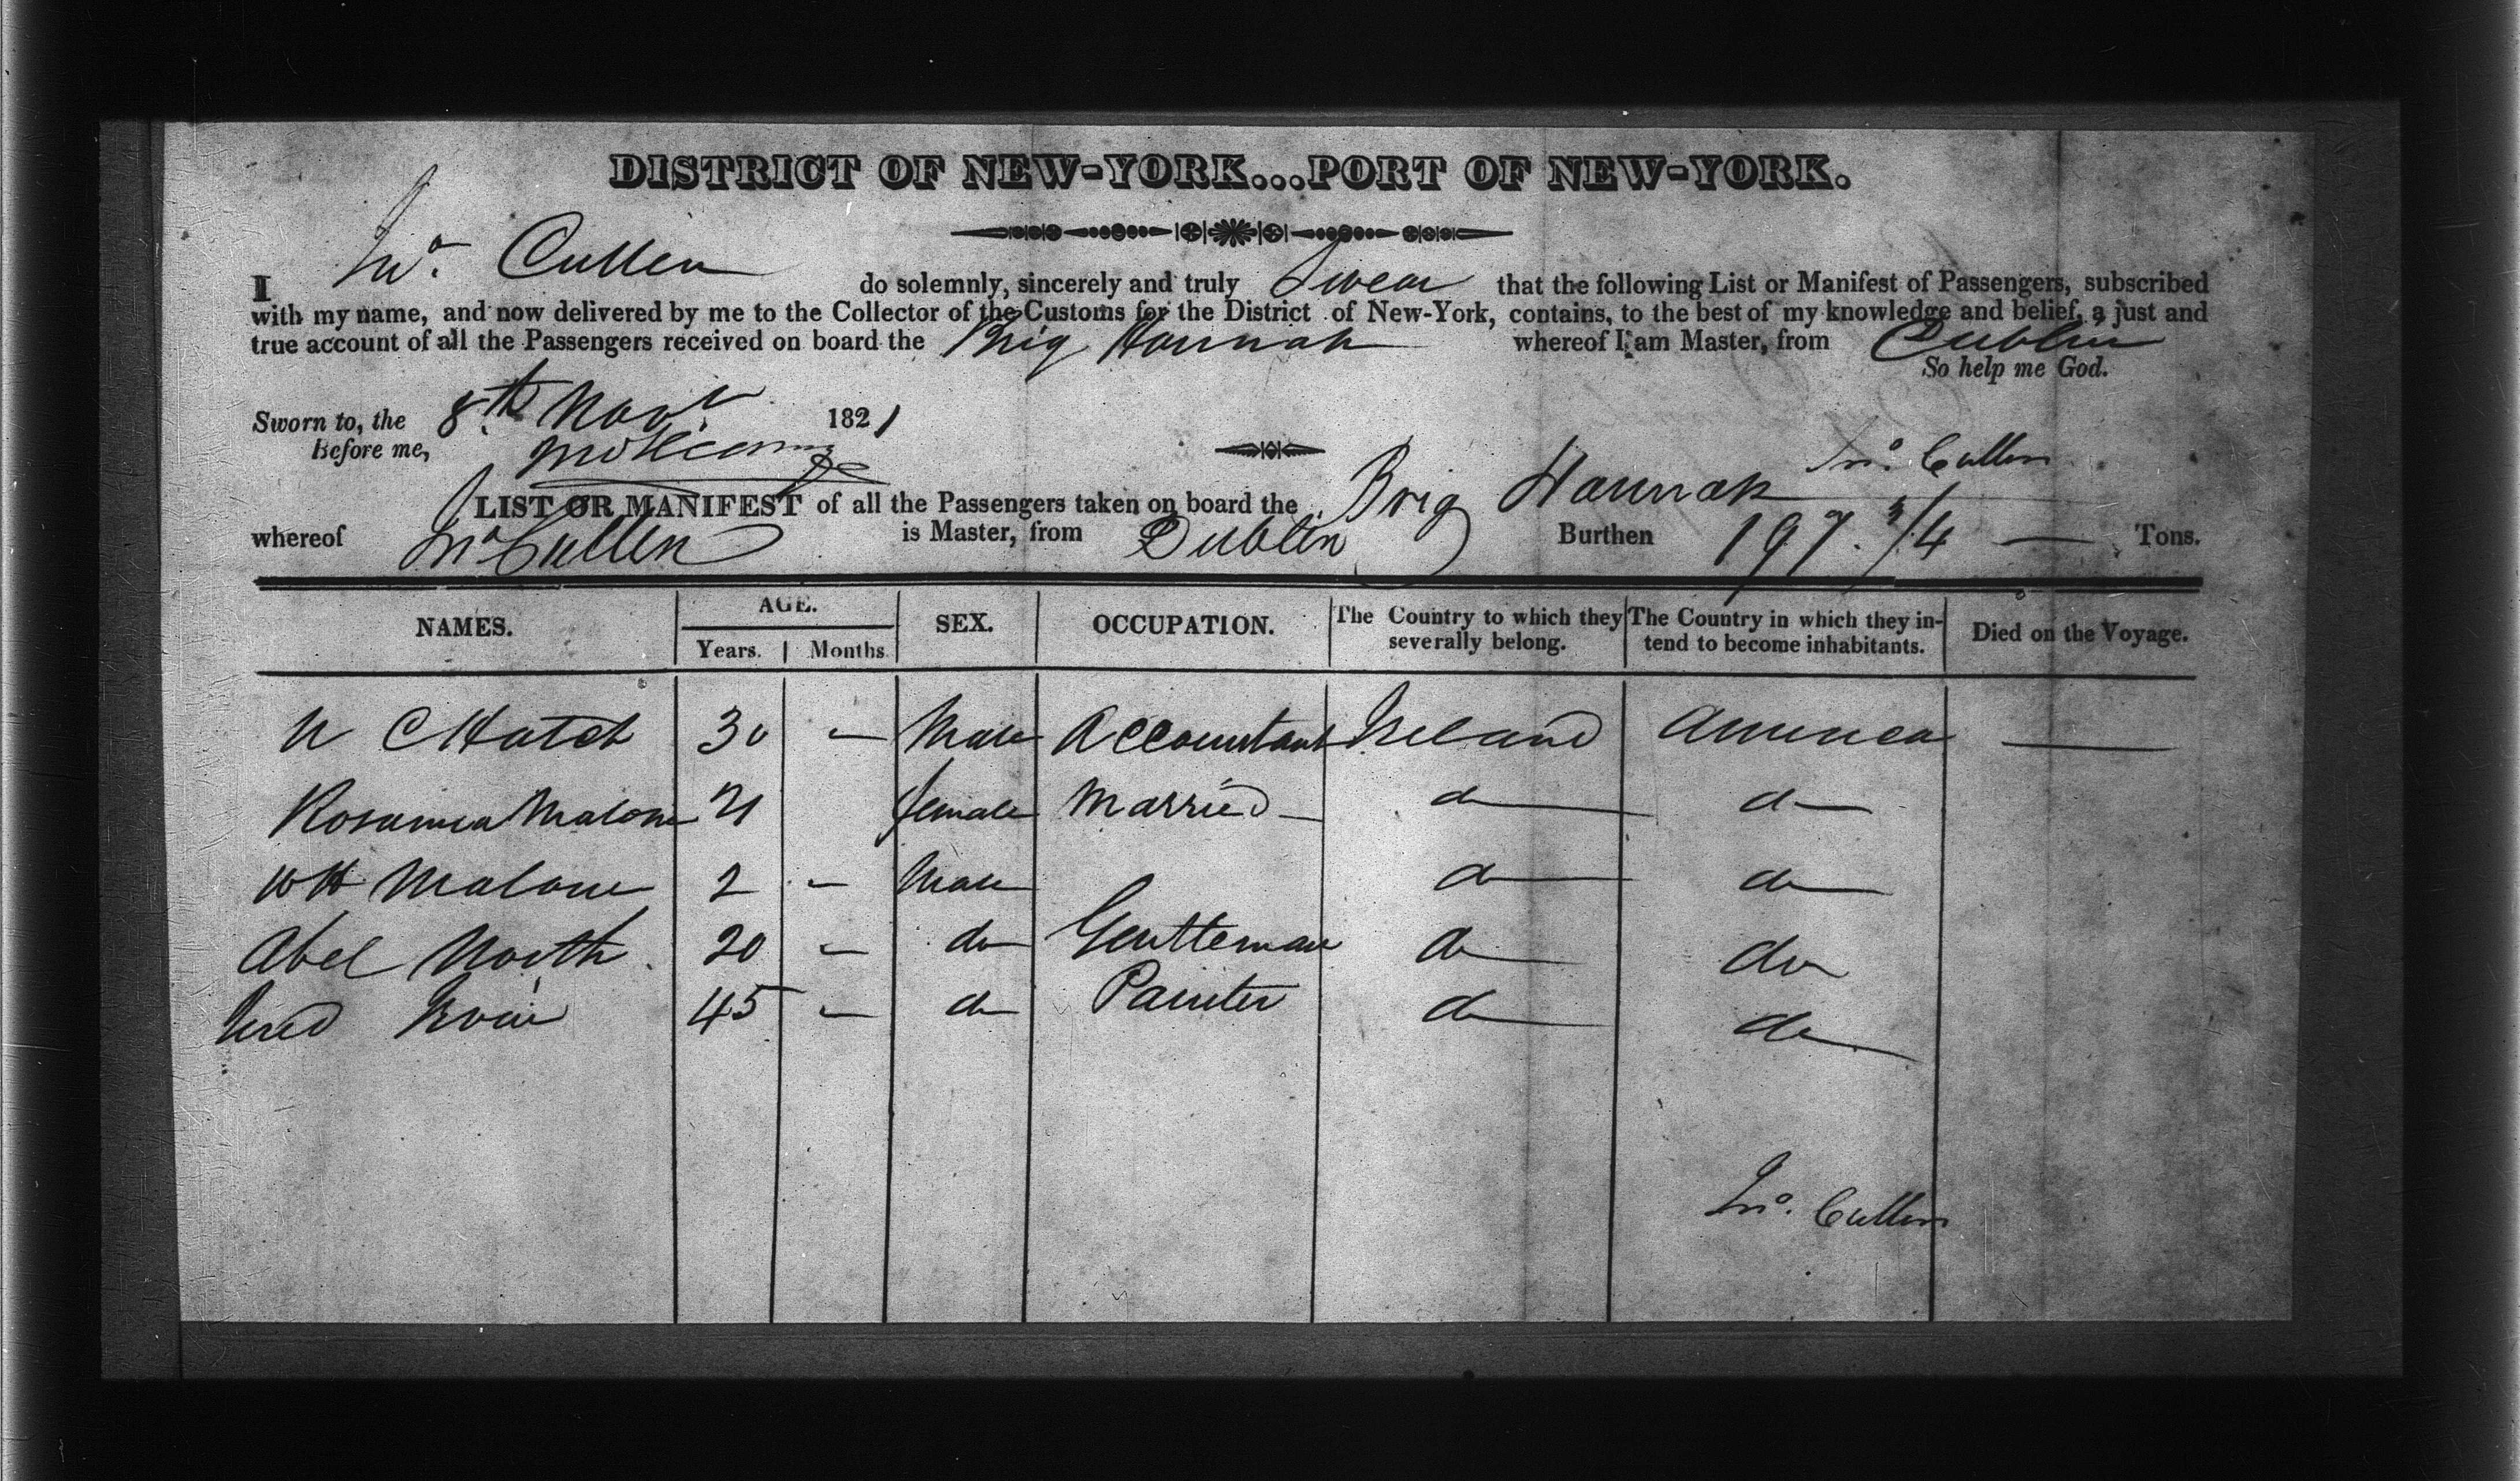 DISTRICT OF NEW-YORK...PORT OF NEW-YORK.
I Jno. Cullen do solemnly, sincerely and truly Swear that the following List or Manifest of Passengers, subscribed
with my name, and now delivered by me to the Collector of the Customs for the District of New-York, contains, to the best of my knowledge and belief, a just and
true account of all the Passengers received on board the Brig Hannah whereof I am Master, from Dublin
So help me God.
Sworn to, the 8th Novr. 1821
Before me,
Jno. Cullen
LIST OR MANIFEST of all the Passengers taken on board the Brig Hannah
whereof Jno Cullen is Master, from Dublin Burthen 197. 3/4 — Tons.
NAMES. AGE. SEX. OCCUPATION. The Country to which they severally belong. The Country in which they intend to become inhabitants. Died on the Voyage.
Years. Months
C Hatch 30 — Male Accountant Ireland America —
Malone 21 female Married — do do
WH Malone 2 — Male do do
Abel North. 20 — do Gentleman do do
45 — do Painter do do
Jno. Cullen